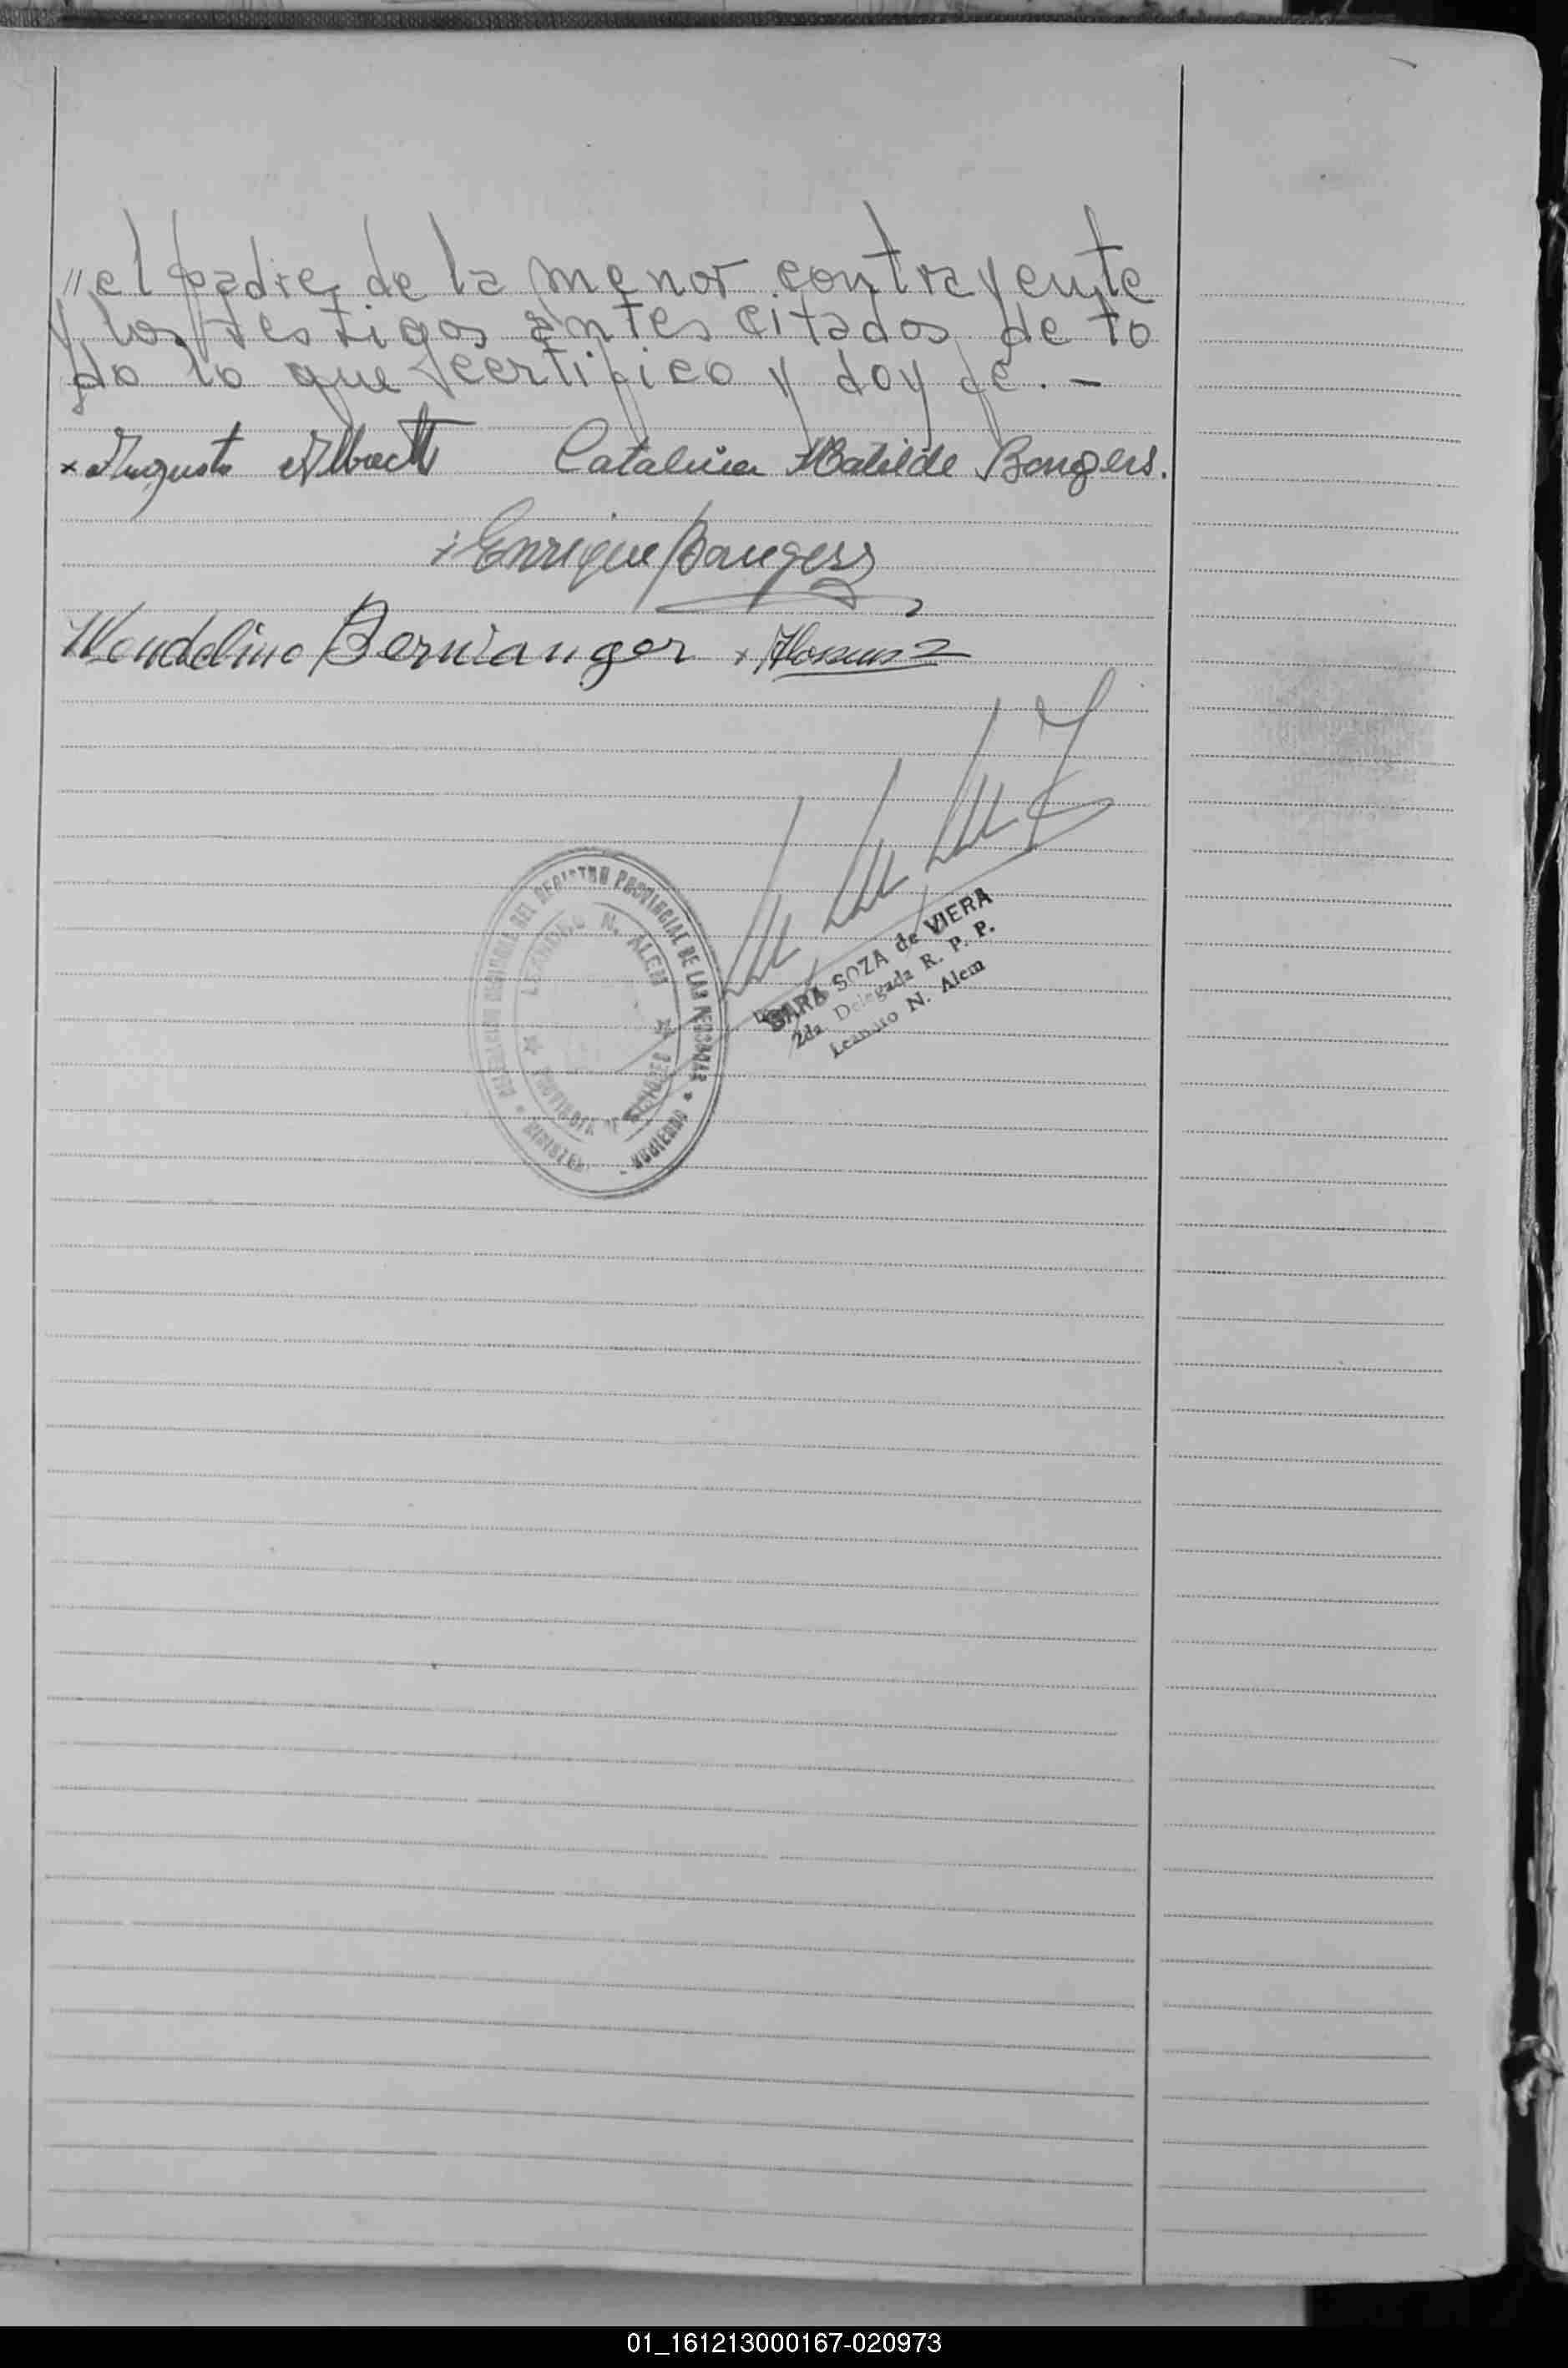 // el padre de la menor contrayente
y los testigos antes citados de to
do lo que certifico y doy fé. -
x Augusto Albrecht Catalina Matilde Bongers.
x Enrique Bongers
Wendelino Berwanger x
DELEGACION REGIONAL DEL REGISTRO PROVINCIAL DE LAS PERSONAS * MINISTERIO GOBIERNO *
LEANDRO N. ALEM
PROVINCIA DE MISIONES
SARA SOZA de VIERA
2da. Delegada R. P. P.
Leandro N. Alem
01_161213000167-020973